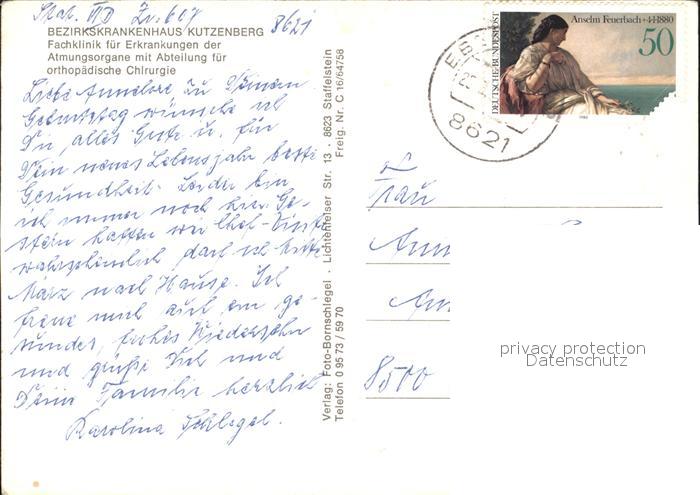 Stat. III D Zr. 607 8621
BEZIRKSKRANKENHAUS KUTZENBERG
Fachklinik für Erkrankungen der
Atmungsorgane mit Abteilung für
orthopädische Chirurgie
Liebe Annelore zu Deinem
Geburtstag wünsche ich
Dir alles Gute u. für
Dein neues Lebensjahr beste
Gesundheit. Leider bin
ich immer noch hier. Ge-
stern hatten wir Chef-Visite
wahrscheinlich darf ich Mitte
März nach Hause. Ich
freue mich auf ein ge-
sundes, frohes Wiedersehn
und grüße Dich und
Deine Familie herzlich
Karolina Schlegel.
Verlag: Foto-Bornschlegel · Lichtenfelser Str. 13 · 8623 Staffelstein
Telefon 0 95 73 / 59 70 Freig. Nr. C 16/64758
Anselm Feuerbach +4·1·1880
50
DEUTSCHE BUNDESPOST
EB
8621
Frau
Ann
8500
privacy protection
Datenschutz